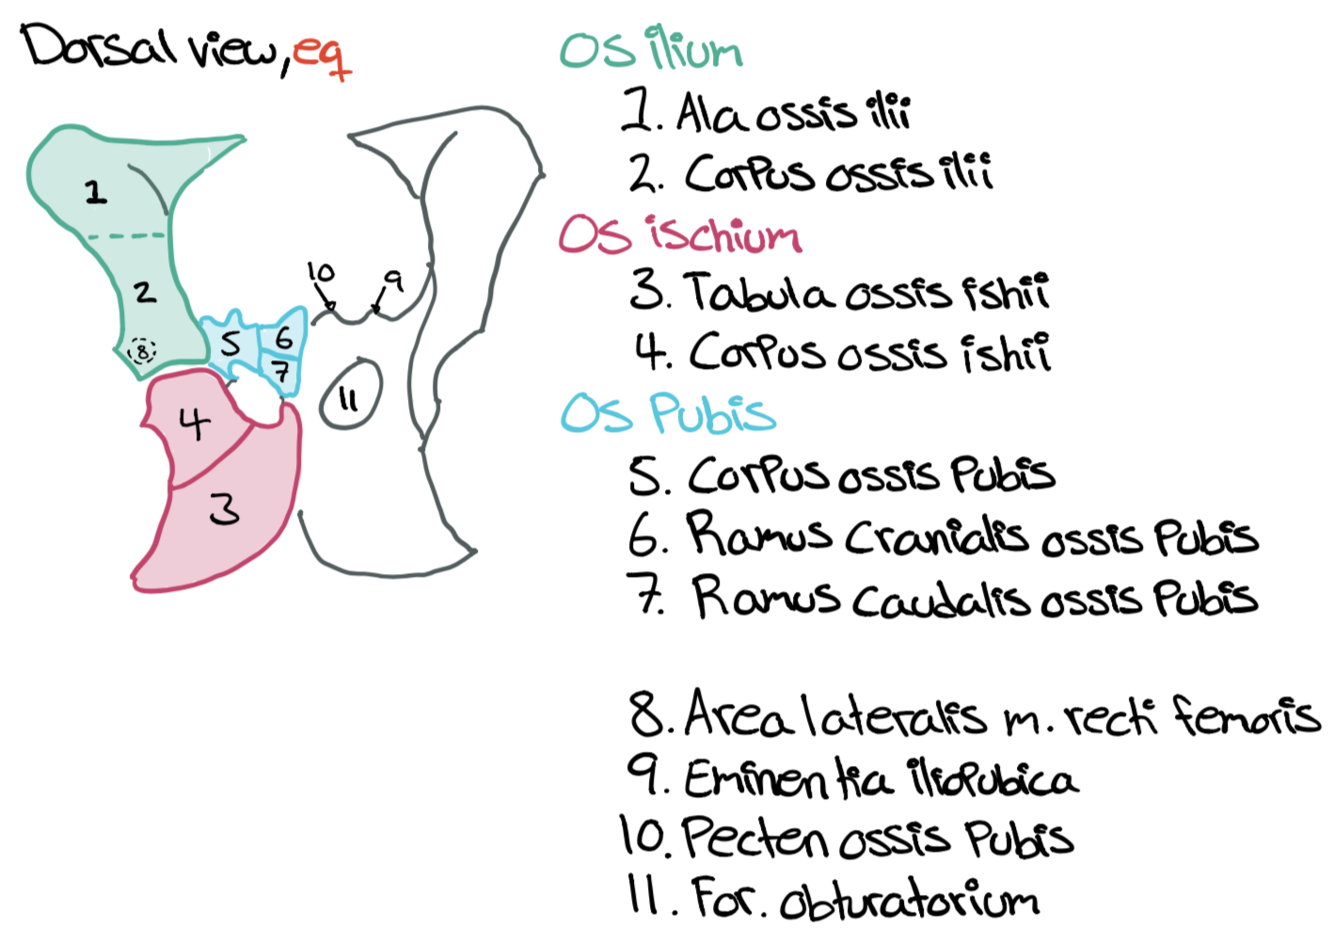 Dorsal view, eq
Os ilium
1. Ala ossis ilii
2. Corpus ossis ilii
Os ischium
3. Tabula ossis ishii
4. Corpus ossis ishii
Os Pubis
5. Corpus ossis Pubis
6. Ramus Cranialis ossis Pubis
7. Ramus Caudalis ossis Pubis
8. Area lateralis m. recti femoris
9. Eminentia iliopubica
10. Pecten ossis Pubis
11. For. obturatorium
1
2
8
5
6
7
4
3
10
9
11